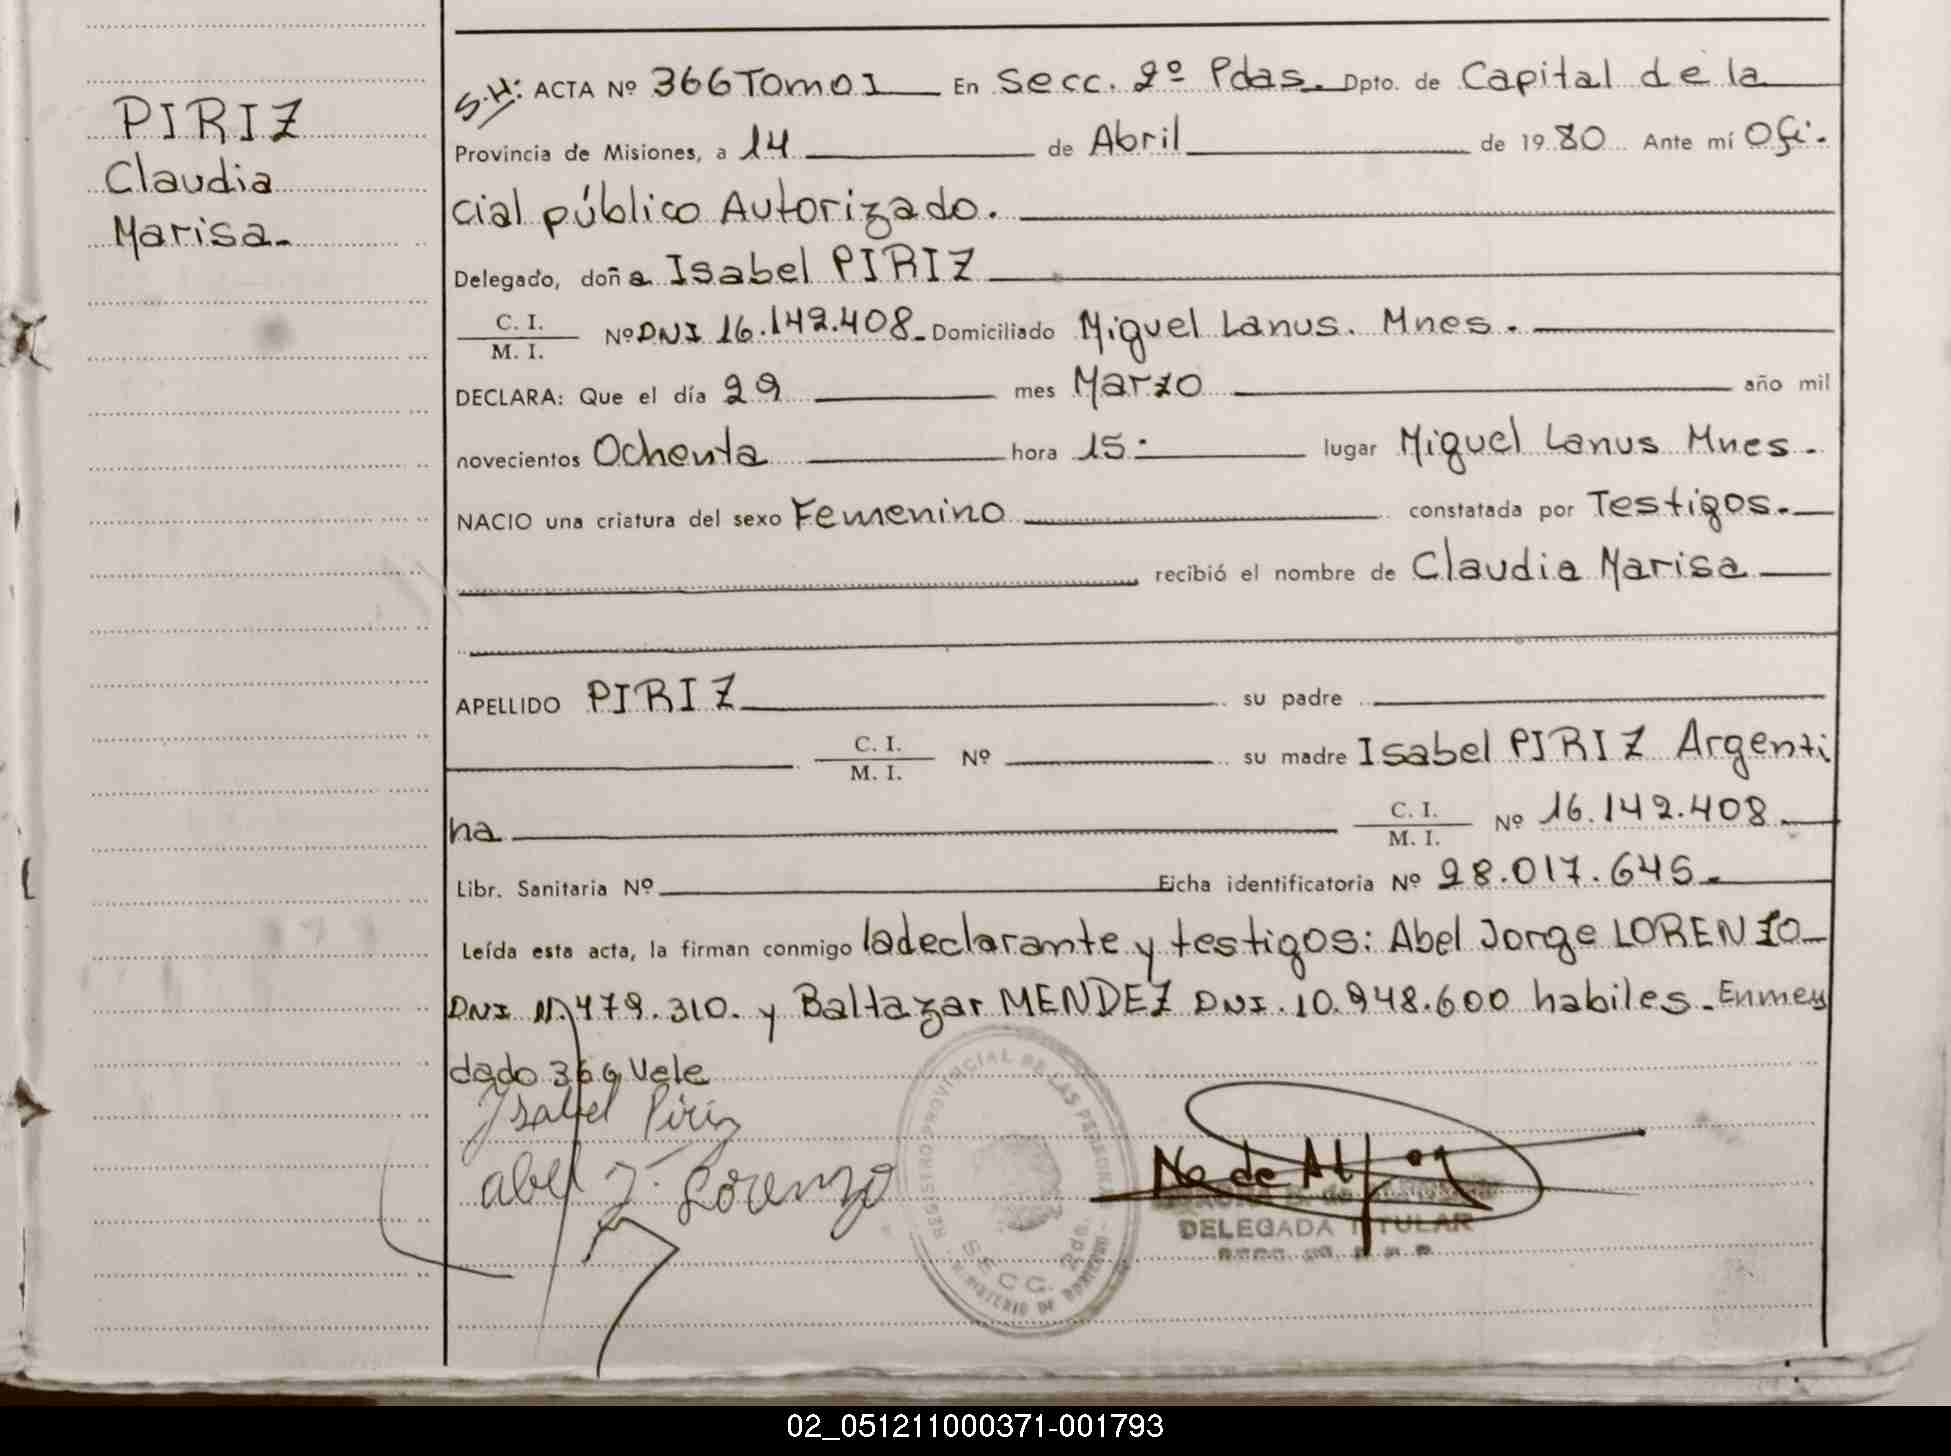 PIRIZ
Claudia
Marisa.
S.H: ACTA Nº 366 Tomo I En Secc. 2º Pdas. Dpto. de Capital de la
Provincia de Misiones, a 14 de Abril de 1980 Ante mí Ofi-
cial público Autorizado.
Delegado, doña Isabel PIRIZ
C. I.
M. I. Nº DNI 16.142.408 Domiciliado Miguel Lanus. Mnes.
DECLARA: Que el día 29 mes Marzo año mil
novecientos Ochenta hora 15: lugar Miguel Lanus Mnes.
NACIO una criatura del sexo Femenino constatada por Testigos.
recibió el nombre de Claudia Marisa
APELLIDO PIRIZ su padre
C. I.
M. I. Nº su madre Isabel PIRIZ Argenti
na C. I.
M. I. Nº 16.142.408
Libr. Sanitaria Nº Ficha identificatoria Nº 28.017.645.
Leída esta acta, la firman conmigo la declarante y testigos: Abel Jorge LORENZO
DNI 11.479.310. y Baltazar MENDEZ DNI. 10.948.600 habiles. Enmen
dado 366 Vale
Isabel Piriz
Abel J. Lorenzo
REGISTRO PROVINCIAL DE LAS PERSONAS
SECC. 2da.
MINISTERIO DE GOBIERNO
DELEGADA TITULAR
02_051211000371-001793